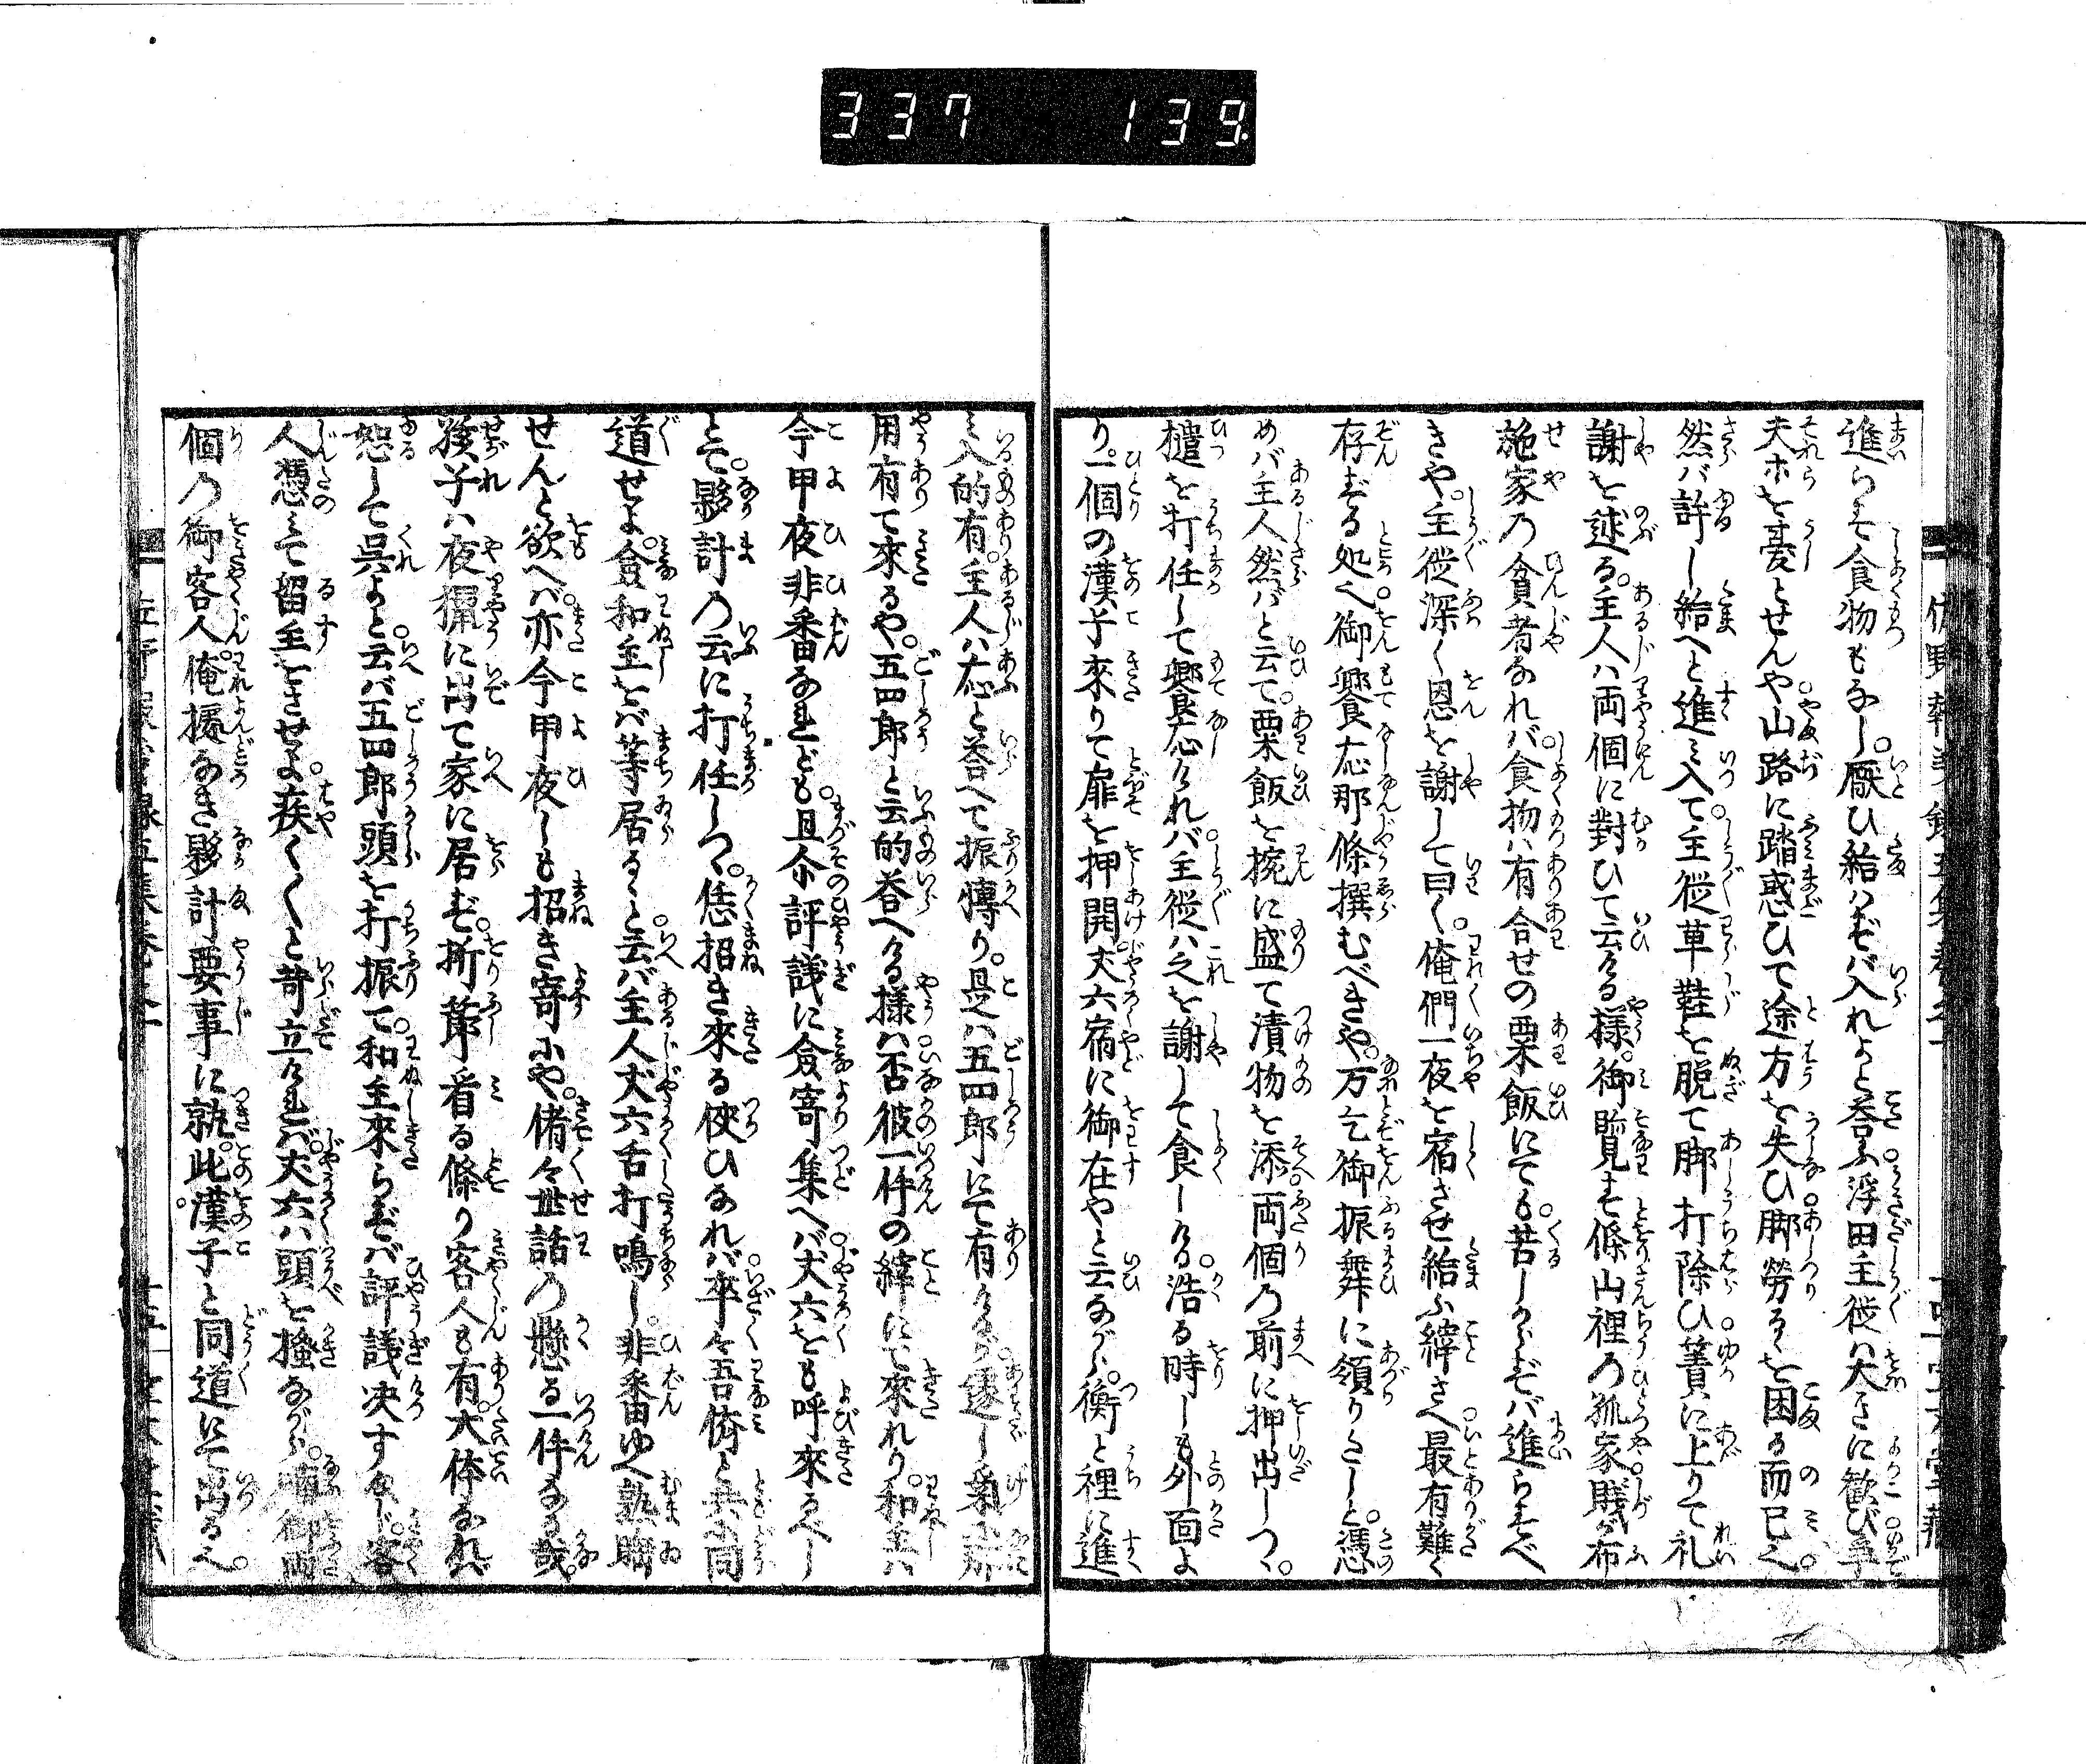 337 139
進らせん食物もなし。厭ひ給はずば入れよと答ふ。浮田主従は大きに歓び争
夫ホを憂とせんや。山路に踏惑ひて途方を失ひ。脚労るゝを困る而已。
然ば許し給へと進み入て。主従草鞋を脱て脚打除ひ。簀に上りて礼
謝を述る。主人は両個に対ひて云ける様。御覧ぜる條山裡の孤家。賎が布
施家の貧者なれば。食物は有合せの粟飯にても。苦しからずば進らすべ
きや。主従深く恩を謝して曰く。俺們一夜を宿させ給ふ緯さへ。最有難く
存ずる処へ。御饗応那條撰むべきや。万乞御振舞に領りたしと。憑
めば主人然ばと云て。粟飯を椀に盛て漬物を添。両個の前に押出しつゝ。
櫃を打任して饗応ければ。主従は之を謝して食しける。浩る時しも外面よ
り。一個の漢子来りて扉を押開。丈六宿に御在やと云ながら。衝と裡に進
み入的有。主人は応と答へて振愽り。是は五四郎にて有けるが。遽し気に那
用有て来るや。五四郎と云的答へける様。否彼一件の緯にて来れり。和主は
今甲夜非番なれども。且尒評議に僉寄集へば。丈六をも呼来るべし
とて。夥計の云に打任しつ。恁招き来る使ひなれば。卒々吾儕と共に同
道せよ。僉和主をば等居ると。云ば主人丈六舌打鳴し。非番ゆへ熟睡
せんと欲へば。亦今甲夜しも招き寄るや。偖々世話の懸る一件なる哉。
猴子は夜猟に出て家に居ず。折節看る條り客人も有。大体なれば
恕して呉よと。云ば五四郎頭を打振て。和主来らずば評議決すまじ。客
人憑みて留主をさせよ。疾くくと苛立ければ。丈六は頭を掻ながら。喃御両
個の御客人。俺據なき夥計要事に就。此漢子と同道にて出るへ。